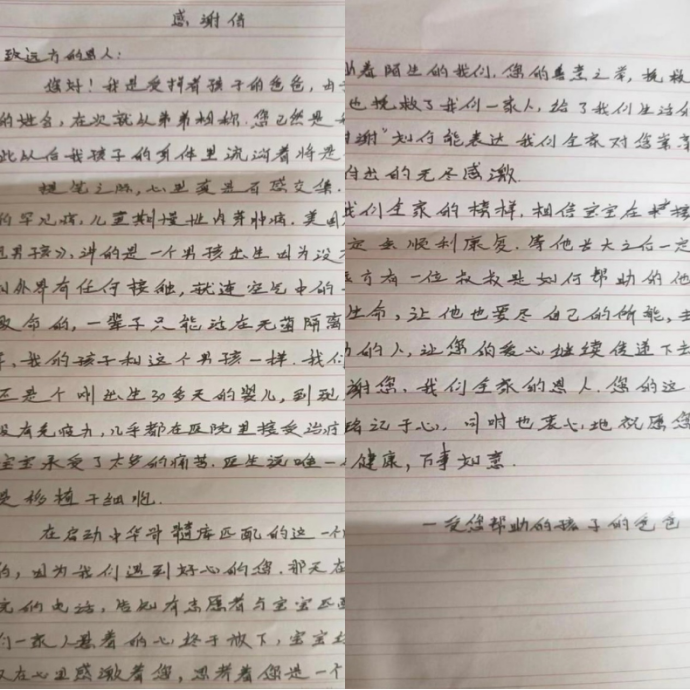 感谢信
致远方的恩人:
您好!我是受捐者孩子的爸爸,由于
的姓名,在次就以弟弟相称.您已然是
此以后我孩子的身体里流淌着将是
提笔之际,心里真是百感交集.
的罕见病,儿童期慢性肉芽肿病.美国
男孩》,讲的是一个男孩出生因为没
外界有任何接触,就连空气中的
致命的,一辈子只能活在无菌隔离
我的孩子和这个男孩一样.我们
还是个刚出生30多天的婴儿,到现
没有免疫力,几乎都在医院里接受治疗
宝宝承受了太多的痛苦.医生说唯一
是移植干细胞.
在启动中华骨髓库匹配的这一
的,因为我们遇到好心的您.那天在
的电话,告知有志愿者与宝宝匹配
们一家人悬着的心终于放下,宝宝
在心里感激着您,思考着您是一个
助着陌生的我们,您的善意之举,挽救
也挽救了我们一家人,给了我们生活
谢"如何能表达我们全家对您
付出的无尽感激.
我们全家的榜样,相信宝宝在
会顺利康复.等他长大之后一定
方有一位叔叔是如何帮助的他
生命,让他也要尽自己的所能,去
的人,让您的爱心继续传递下去
谢您,我们全家的恩人.您的这
铭记于心,同时也衷心地祝愿您
健康,万事如意.
一受您帮助的孩子的爸爸